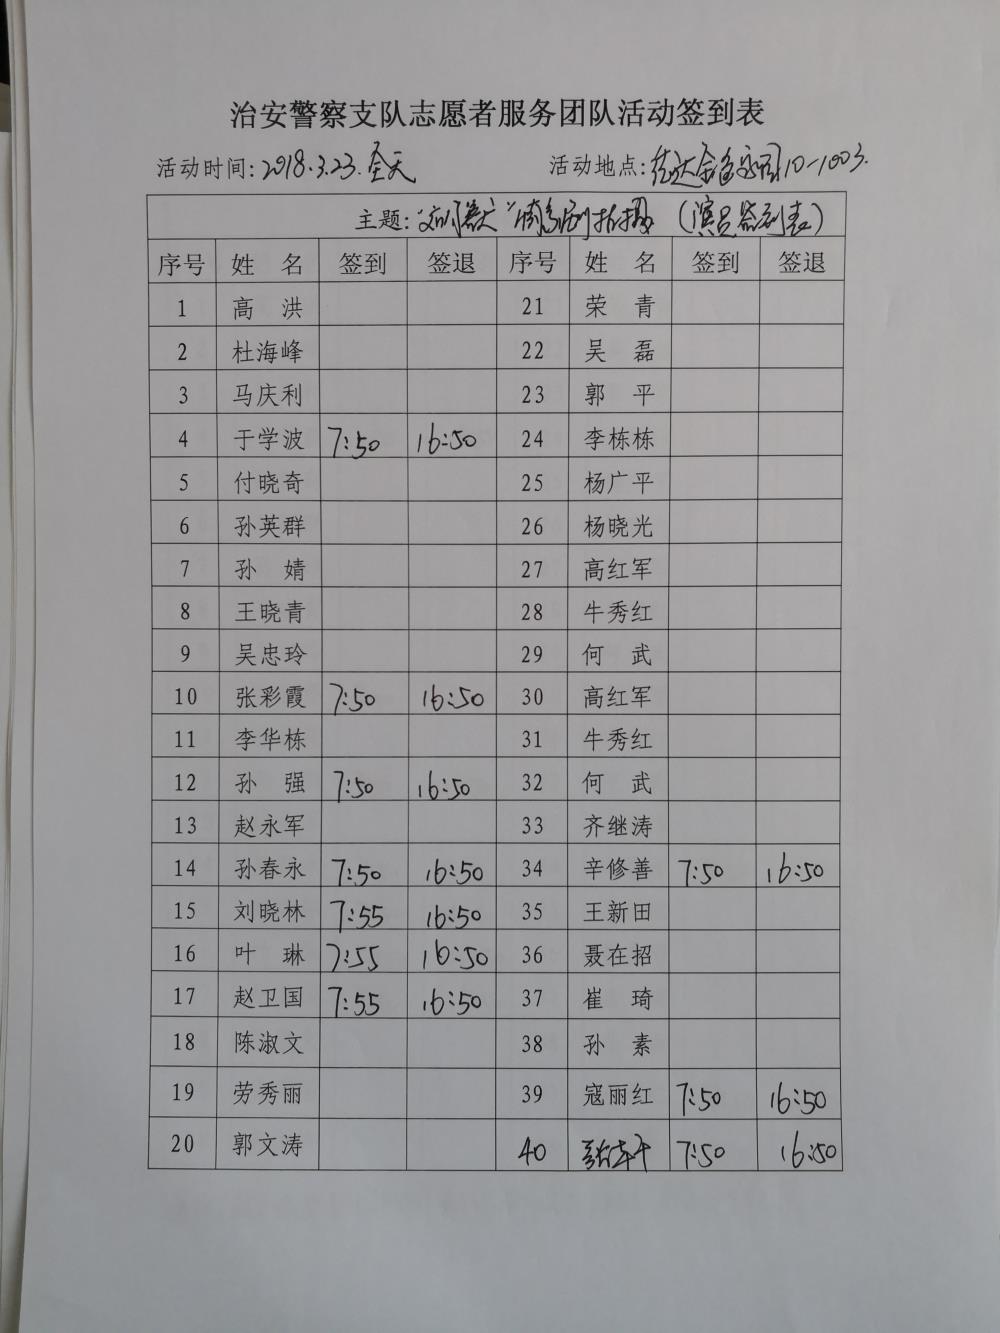 治安警察支队志愿者服务团队活动签到表
活动时间:2018.3.23.全天 活动地点:佳达金色家园10-1003.
主题: 拍摄 (演员签到表)
序号 姓 名 签到 签退 序号 姓 名 签到 签退
1 高 洪 21 荣 青
2 杜海峰 22 吴 磊
3 马庆利 23 郭 平
4 于学波 7:50 16:50 24 李栋栋
5 付晓奇 25 杨广平
6 孙英群 26 杨晓光
7 孙 婧 27 高红军
8 王晓青 28 牛秀红
9 吴忠玲 29 何 武
10 张彩霞 7:50 16:50 30 高红军
11 李华栋 31 牛秀红
12 孙 强 7:50 16:50 32 何 武
13 赵永军 33 齐继涛
14 孙春永 7:50 16:50 34 辛修善 7:50 16:50
15 刘晓林 7:55 16:50 35 王新田
16 叶 琳 7:55 16:50 36 聂在招
17 赵卫国 7:55 16:50 37 崔 琦
18 陈淑文 38 孙 素
19 劳秀丽 39 寇丽红 7:50 16:50
20 郭文涛 40 7:50 16:50